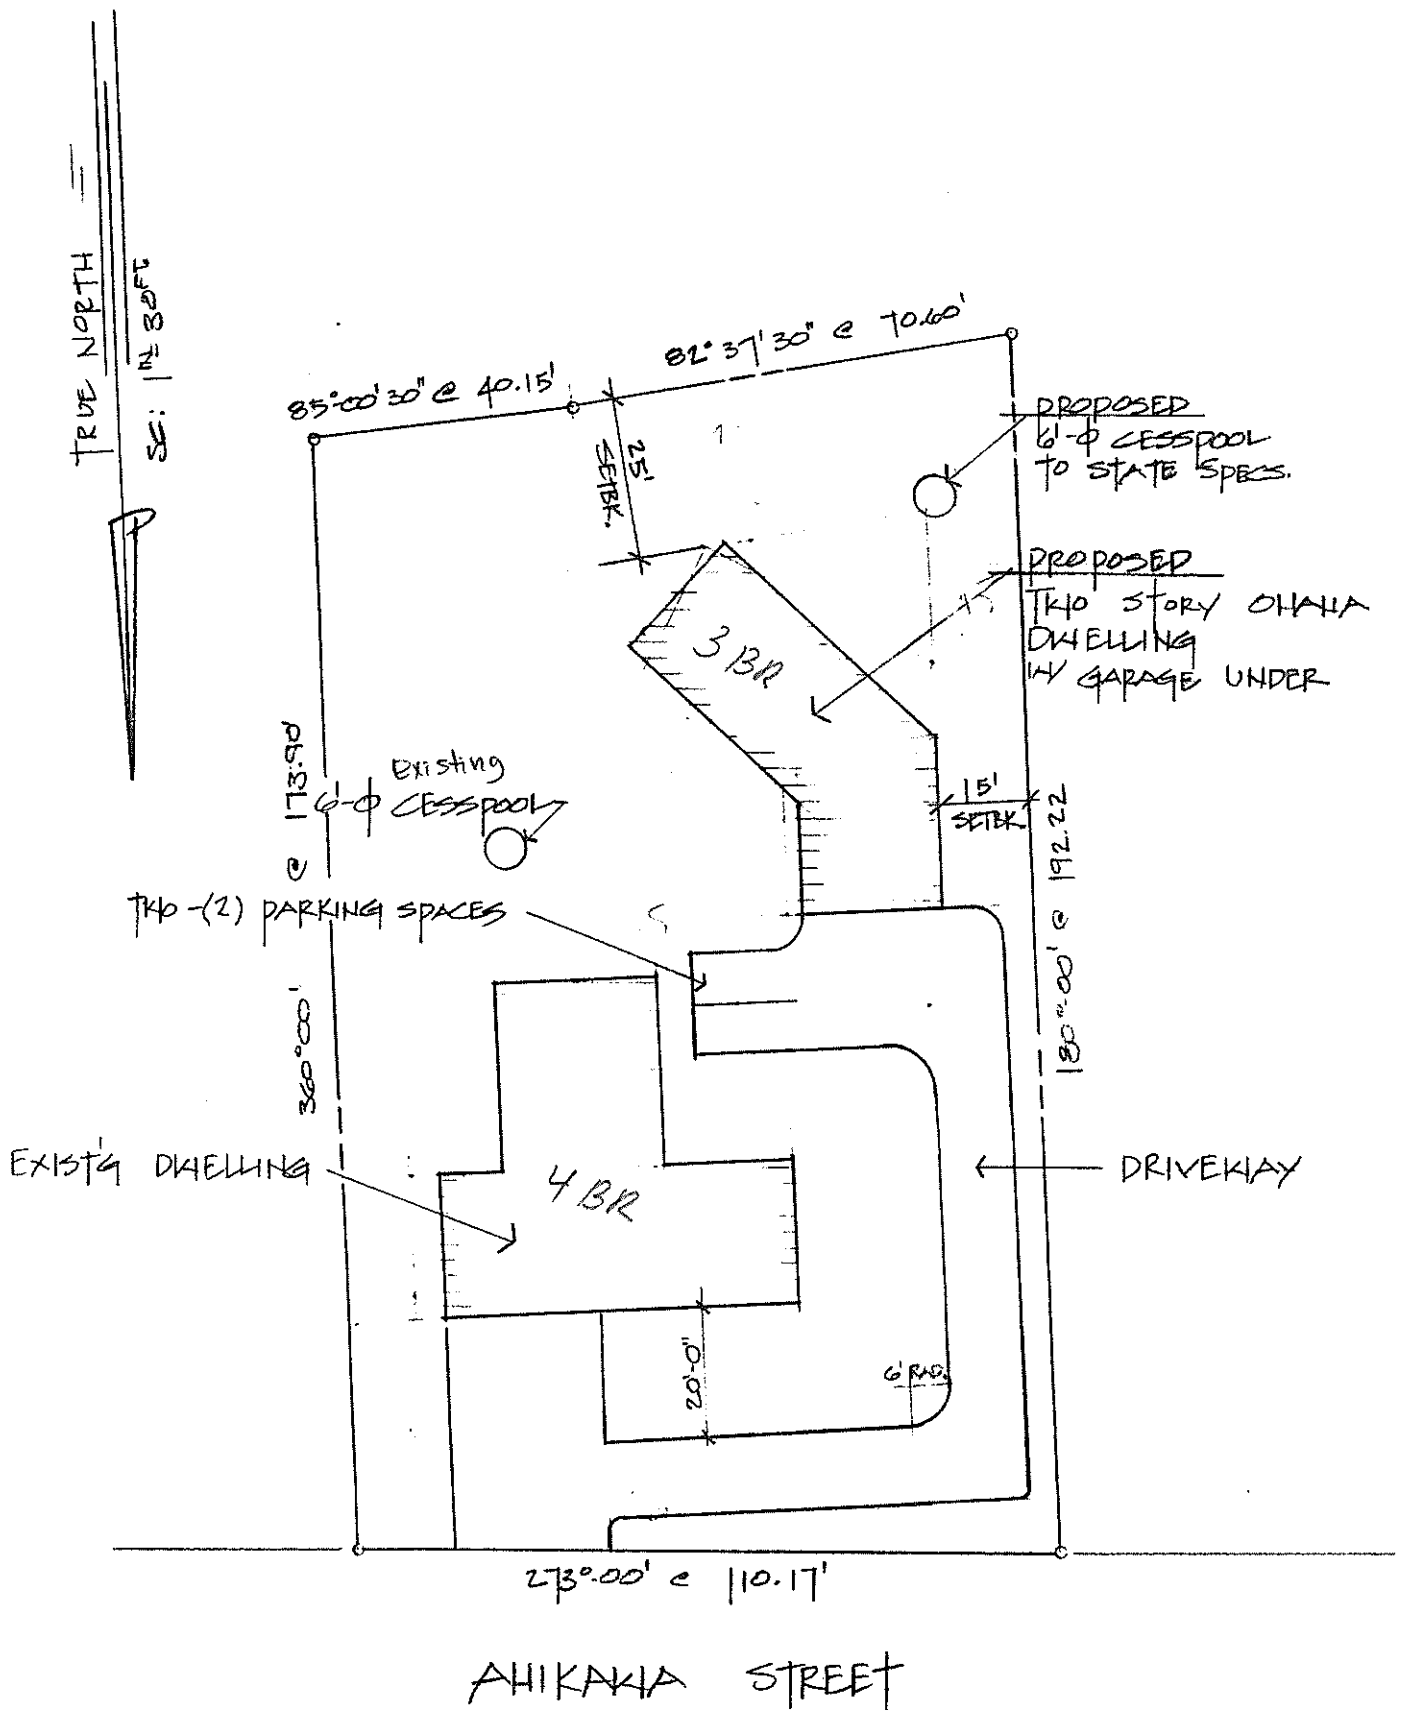 TRUE NORTH
SC: 1 IN = 30 FT
85°-00'30" @ 40.15'
82°37'30" @ 70.60'
25'
SETBK.
PROPOSED
6'-Φ CESSPOOL
TO STATE SPECS.
PROPOSED
TWO STORY OHANA
DWELLING
W/ GARAGE UNDER
3 BR
15'
SETBK.
existing
6'-Φ CESSPOOL
TWO -(2) PARKING SPACES
360°00' @ 173.90'
180°-00' @ 192.22
EXIST'G DWELLING
4 BR
DRIVEWAY
20'-0"
6' RAD.
273°-00' @ 110.17'
AHIKAWA STREET